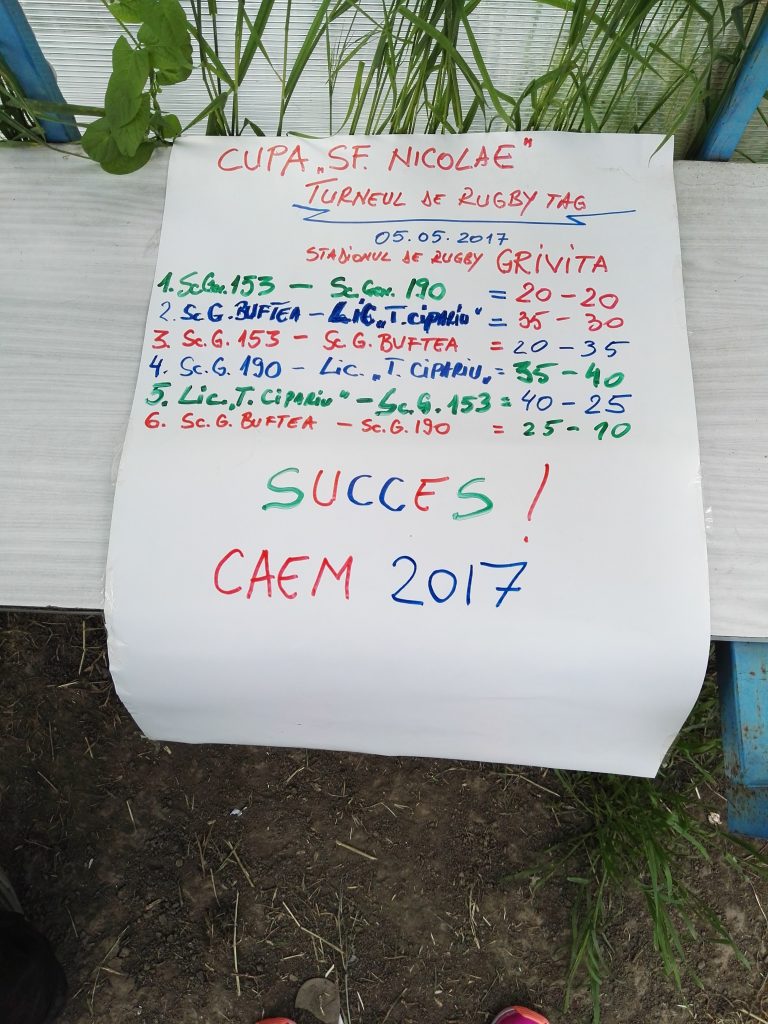 CUPA „SF. NICOLAE"
TURNEUL DE RUGBY TAG
05.05.2017
STADIONUL DE RUGBY GRIVITA
1. Sc.Gen. 153 – Sc.Gen. 190 = 20 – 20
2. Sc G. BUFTEA – LIC. „T. CIPARIU" = 35 – 30
3. Sc. G. 153 – Sc G. BUFTEA = 20 – 35
4. Sc. G. 190 – Lic. „T. CIPARIU„ = 35 – 40
5. Lic. „T. CIPARIU" – Sc. G. 153 = 40 – 25
6. Sc. G. BUFTEA – Sc. G. 190 = 25 – 10
SUCCES !
CAEM 2017